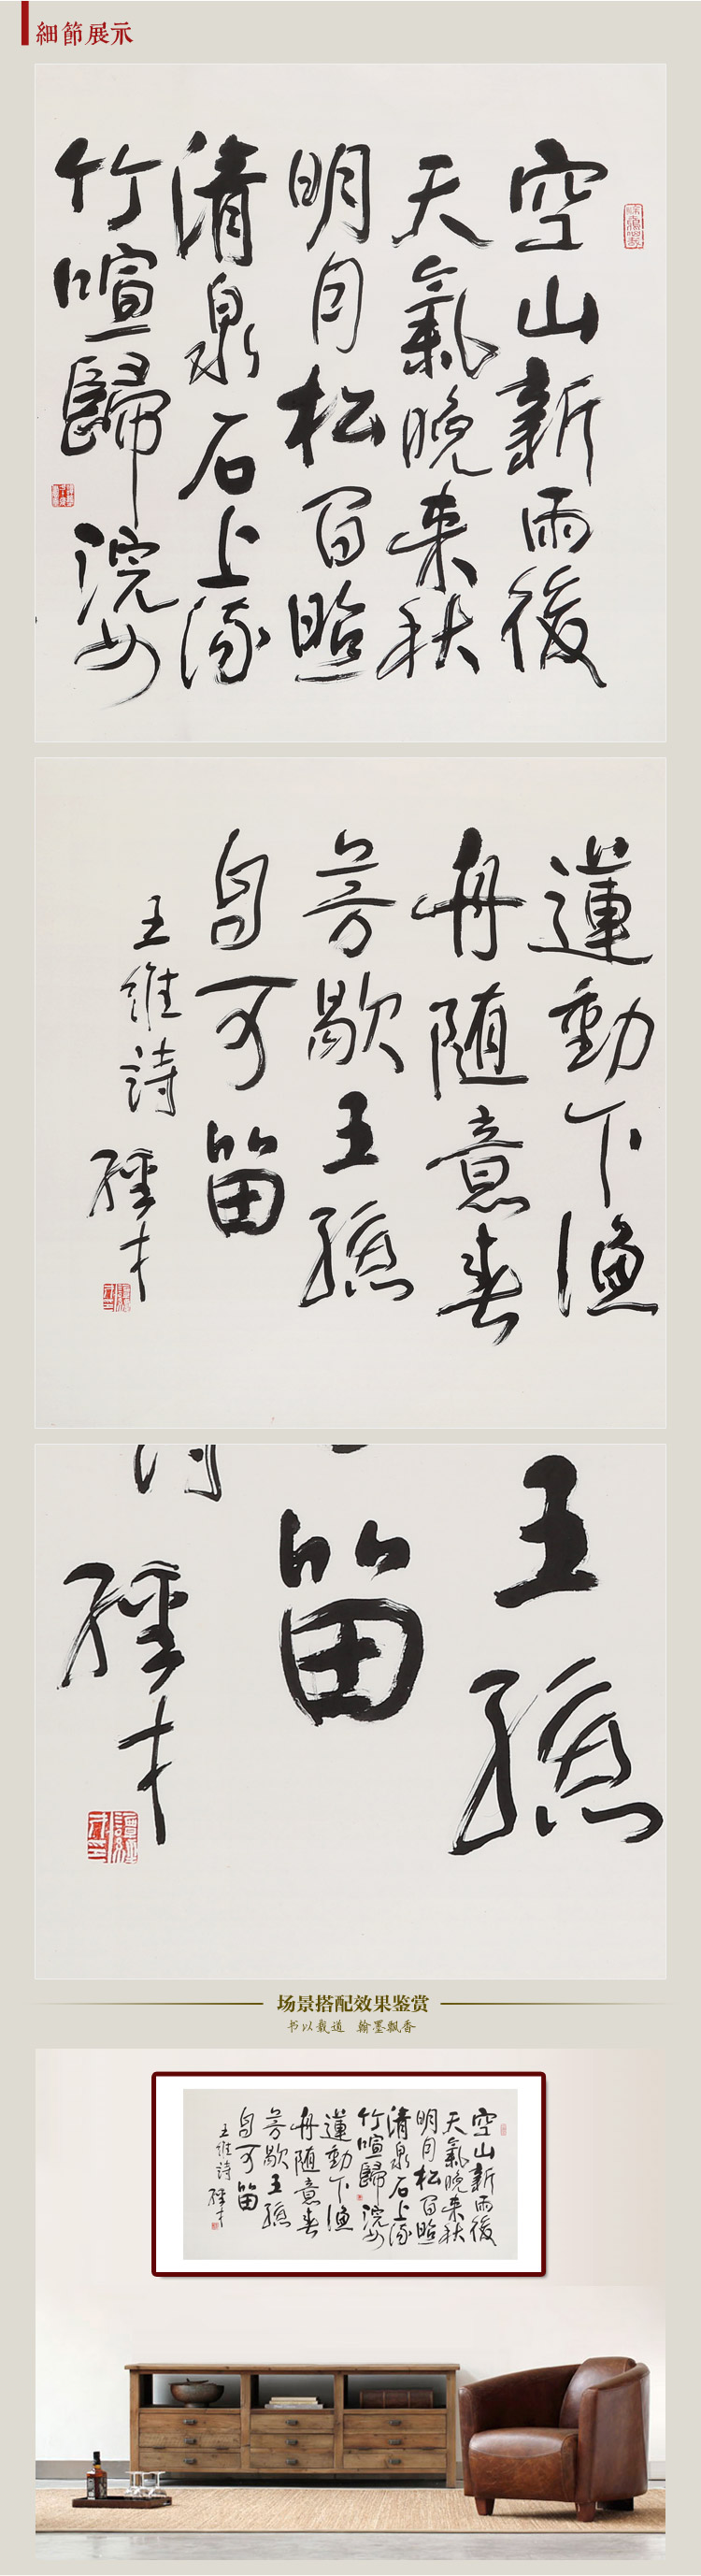 細節展示
空山新雨後
天氣晚来秋
明月松間照
清泉石上流
竹喧歸浣女
蓮動下漁
舟随意春
芳歇王孫
自可留
王維詩
王孫
留
场景搭配效果鉴赏
书以载道 翰墨飘香
空山新雨後
天氣晚来秋
明月松間照
清泉石上流
竹喧歸浣女
蓮動下漁
舟随意春
芳歇王孫
自可留
王維詩